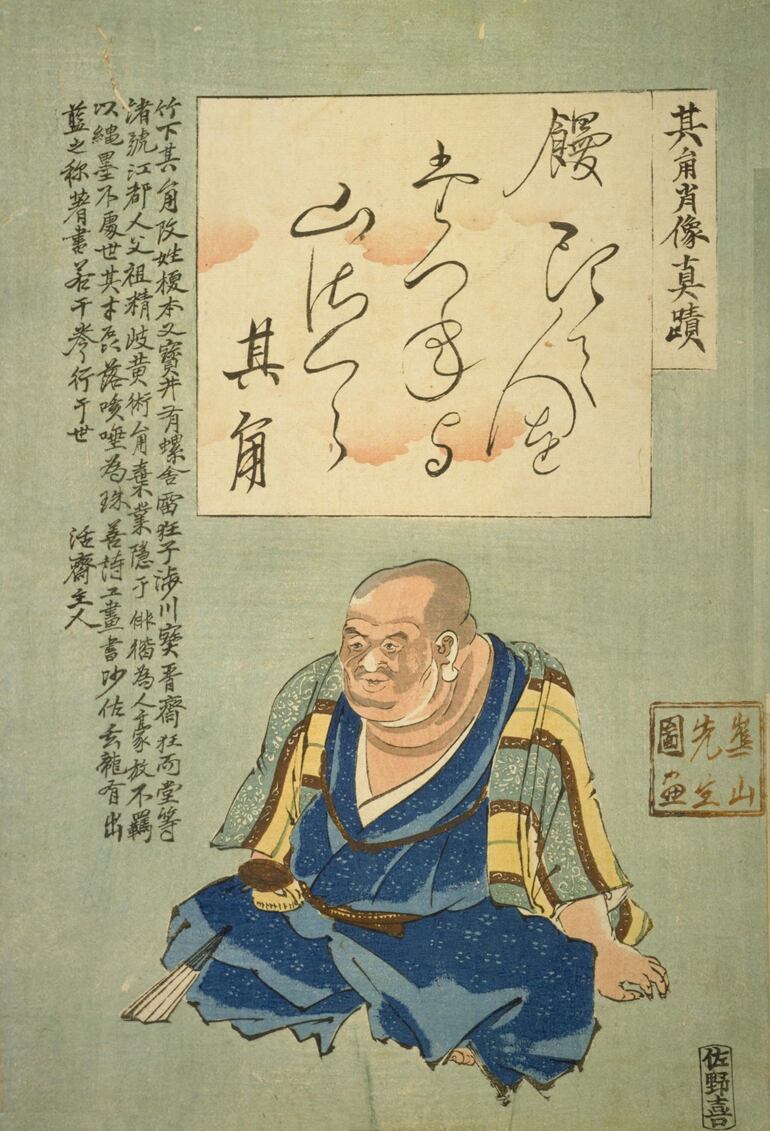 其角肖像真蹟
饅頭て人を
たつねよ
山さくら
其角
竹下其角改姓榎本又寶井有螺舎雷狂子渉川寶晋齋狂而堂等
諸號江都人父祖精岐黄術角棄業隠于俳諧為人豪放不羈
以縄墨不處世其才磊落咳唾為珠善詩工畫書師佐玄龍有出
藍之称著書若干巻行于世
活齋主人
崋山
先生
圖画
佐野喜